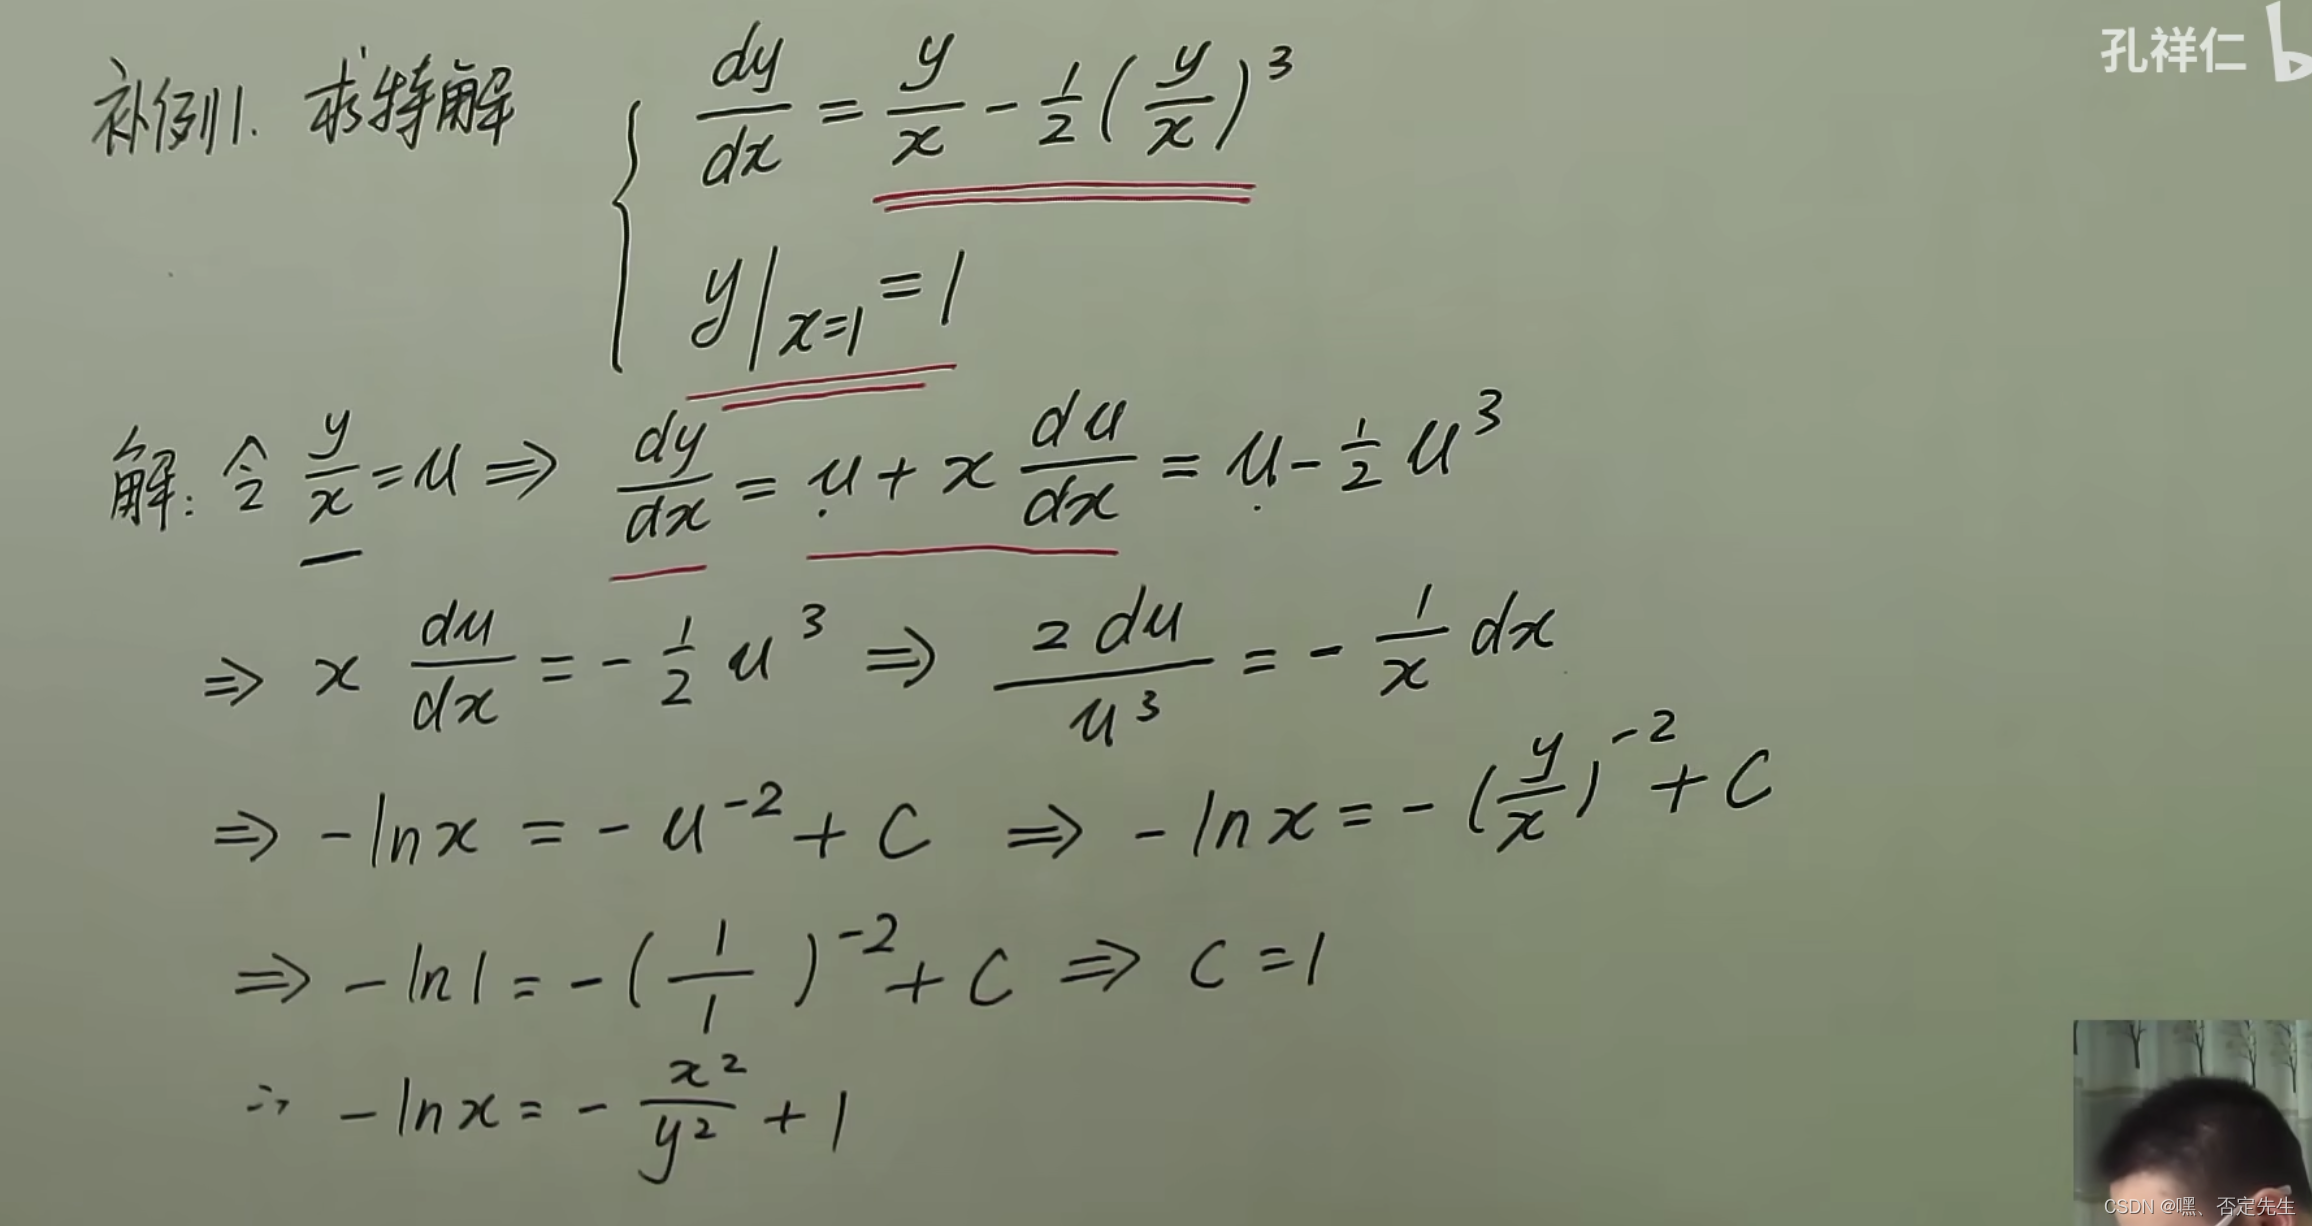 孔祥仁
补例1. 求特解 { dy/dx = y/x - 1/2 (y/x)^3
y|x=1 = 1
解: 令 y/x = u ⇒ dy/dx = u + x du/dx = u - 1/2 u^3
⇒ x du/dx = - 1/2 u^3 ⇒ 2 du/u^3 = - 1/x dx
⇒ - ln x = - u^-2 + C ⇒ - ln x = - (y/x)^-2 + C
⇒ - ln 1 = - (1/1)^-2 + C ⇒ C = 1
∴ - ln x = - x^2/y^2 + 1
CSDN @嘿、否定先生